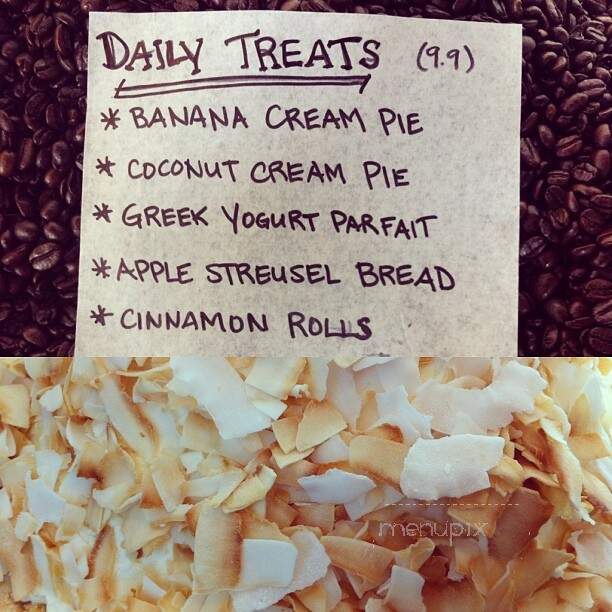 DAILY TREATS (9.9)
* BANANA CREAM PIE
* COCONUT CREAM PIE
* GREEK YOGURT PARFAIT
* APPLE STREUSEL BREAD
* CINNAMON ROLLS
menupix